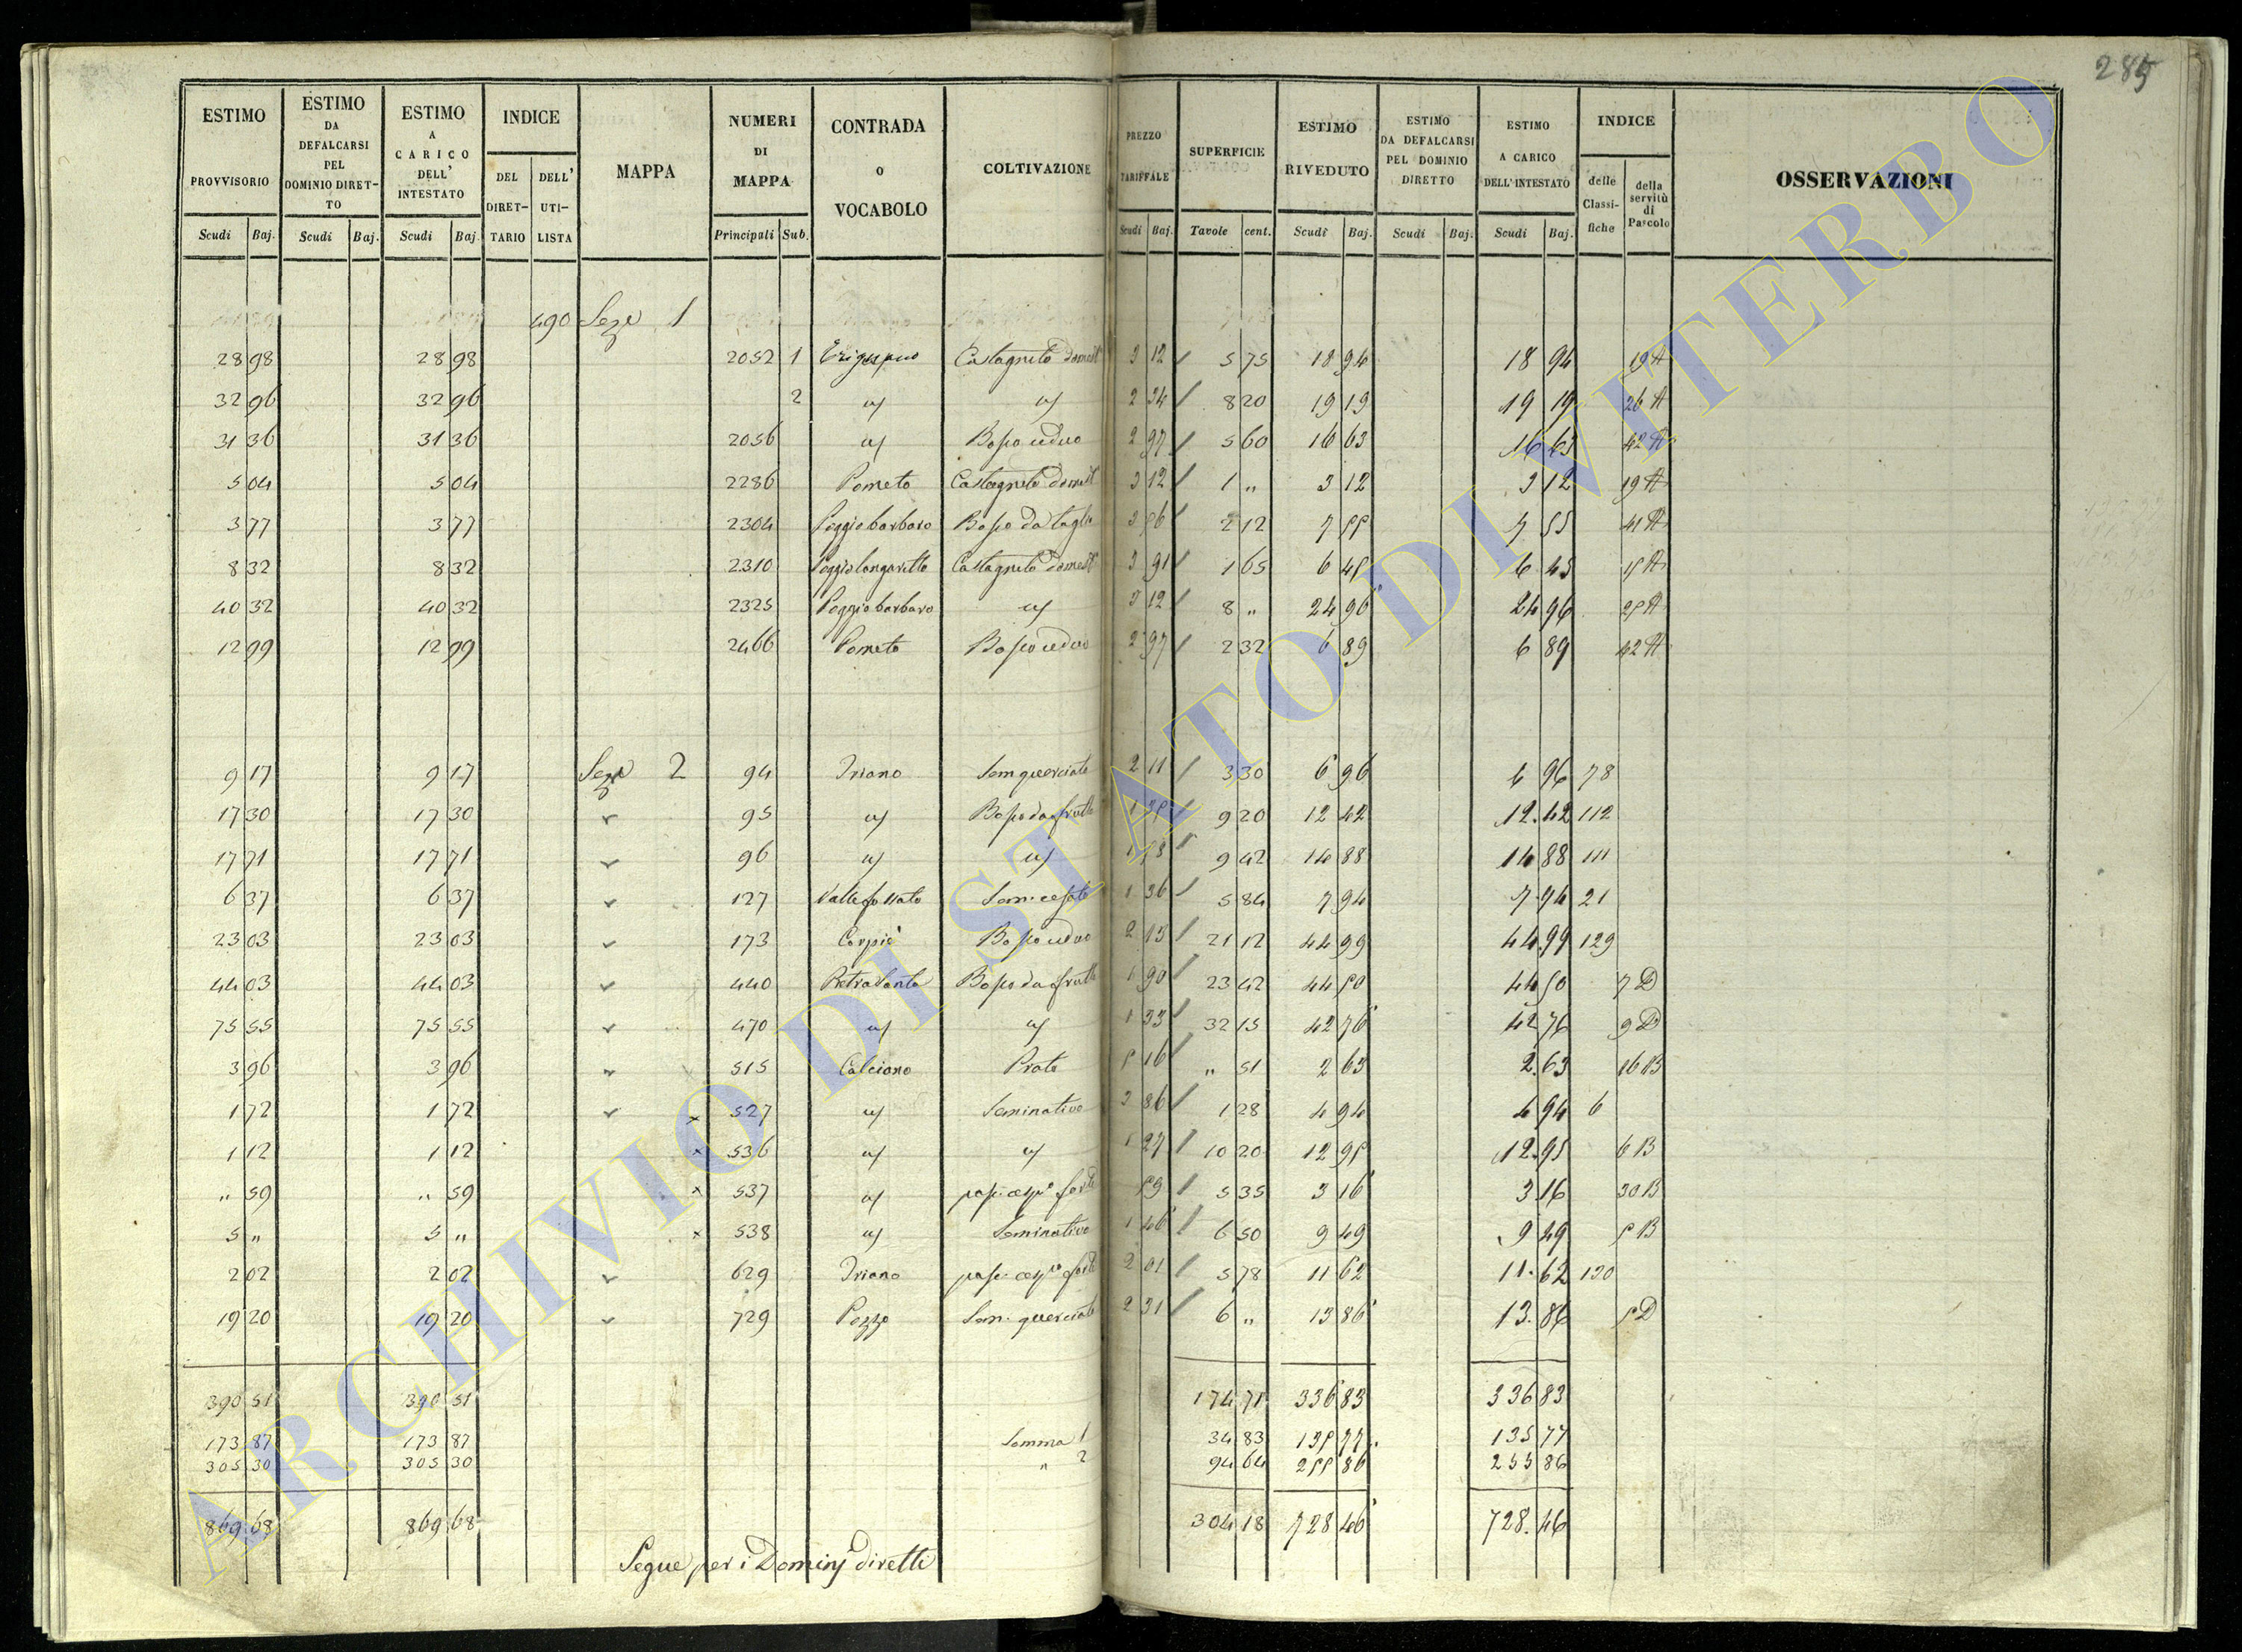 285
ESTIMO PROVVISORIO
ESTIMO DA DEFALCARSI PEL DOMINIO DIRET-TO
ESTIMO A CARICO DELL' INTESTATO
INDICE
DEL DIRET-TARIO
DELL' UTI-LISTA
MAPPA
NUMERI DI MAPPA
CONTRADA o VOCABOLO
COLTIVAZIONE
PREZZO TARIFFALE
SUPERFICIE
ESTIMO RIVEDUTO
ESTIMO DA DEFALCARSI PEL DOMINIO DIRETTO
ESTIMO A CARICO DELL'INTESTATO
INDICE
delle Classi-fiche
della servitù di Pascolo
OSSERVAZIONI
Scudi Baj. Scudi Baj. Scudi Baj. Principali Sub. Scudi Baj. Tavole cent. Scudi Baj. Scudi Baj. Scudi Baj.
490 Seze 1
28 98 28 98 2052 1 Castagneto domest 3 12 / 5 75 18 94 18 94 19 A
32 96 32 96 2 " " 2 34 / 8 20 19 19 19 19 26 A
31 36 31 36 2056 " Bosco ceduo 2 97 / 5 60 16 63 16 63 42 A
5 04 5 04 2286 Pometo Castagneto domest 3 12 / 1 " 3 12 3 12 19 A
3 77 3 77 2304 Poggio barbaro Bosco da taglio 3 56 / 2 12 7 55 7 55 41 A
8 32 8 32 2310 Poggio longarello Castagneto domest 3 91 / 1 65 6 45 6 45 15 A
40 32 40 32 2325 Poggio barbaro " 3 12 / 8 " 24 96 24 96 25 A
12 99 12 99 2466 Pometo Bosco ceduo 2 97 / 2 32 6 89 6 89 42 A
9 17 9 17 Seze 2 94 Iriano Sem querciato 2 11 / 3 30 6 96 6 96 78
17 30 17 30 95 " Bosco da frutto 1 35 / 9 20 12 42 12.42 112
17 71 17 71 96 " " 1 58 / 9 42 14 88 14 88 111
6 37 6 37 127 Valle fossato 1 36 / 5 84 7 94 7.94 21
23 03 23 03 173 Carpio Bosco ceduo 2 13 / 21 12 44 99 44.99 129
44 03 44 03 440 Pietra Santa Bosco da frutto 1 90 / 23 42 44 50 44 50 7 D
75 55 75 55 470 " " 1 33 / 32 15 42 76 42 76 9 D
3 96 3 96 515 Calciano Prato 5 16 / " 51 2 63 2.63 16 B
1 72 1 72 x 527 " Seminativo 3 86 / 1 28 4 94 4 94 6
1 12 1 12 x 536 " " 1 27 / 10 20 12 95 12.95 6 B
" 59 " 59 x 537 " pasc. cesp. forte 59 / 5 35 3 16 3 16 30 B
5 " 5 " x 538 " Seminativo 1 46 / 6 50 9 49 9 49 5 B
2 02 2 02 629 Iriano pasc. cesp. forte 2 01 / 5 78 11 62 11.62 130
19 20 19 20 729 Pozzo Sem. querciato 2 31 / 6 " 13 86 13.86 5 D
390 51 390 51 174 71 336 83 336 83
173 87 173 87 Somma 1 34 83 135 77 135 77
305 30 305 30 " 2 94 64 255 86 255 86
869 68 869 68 304 18 728 46 728.46
Segue per i Dominj diretti
ARCHIVIO DI STATO DI VITERBO